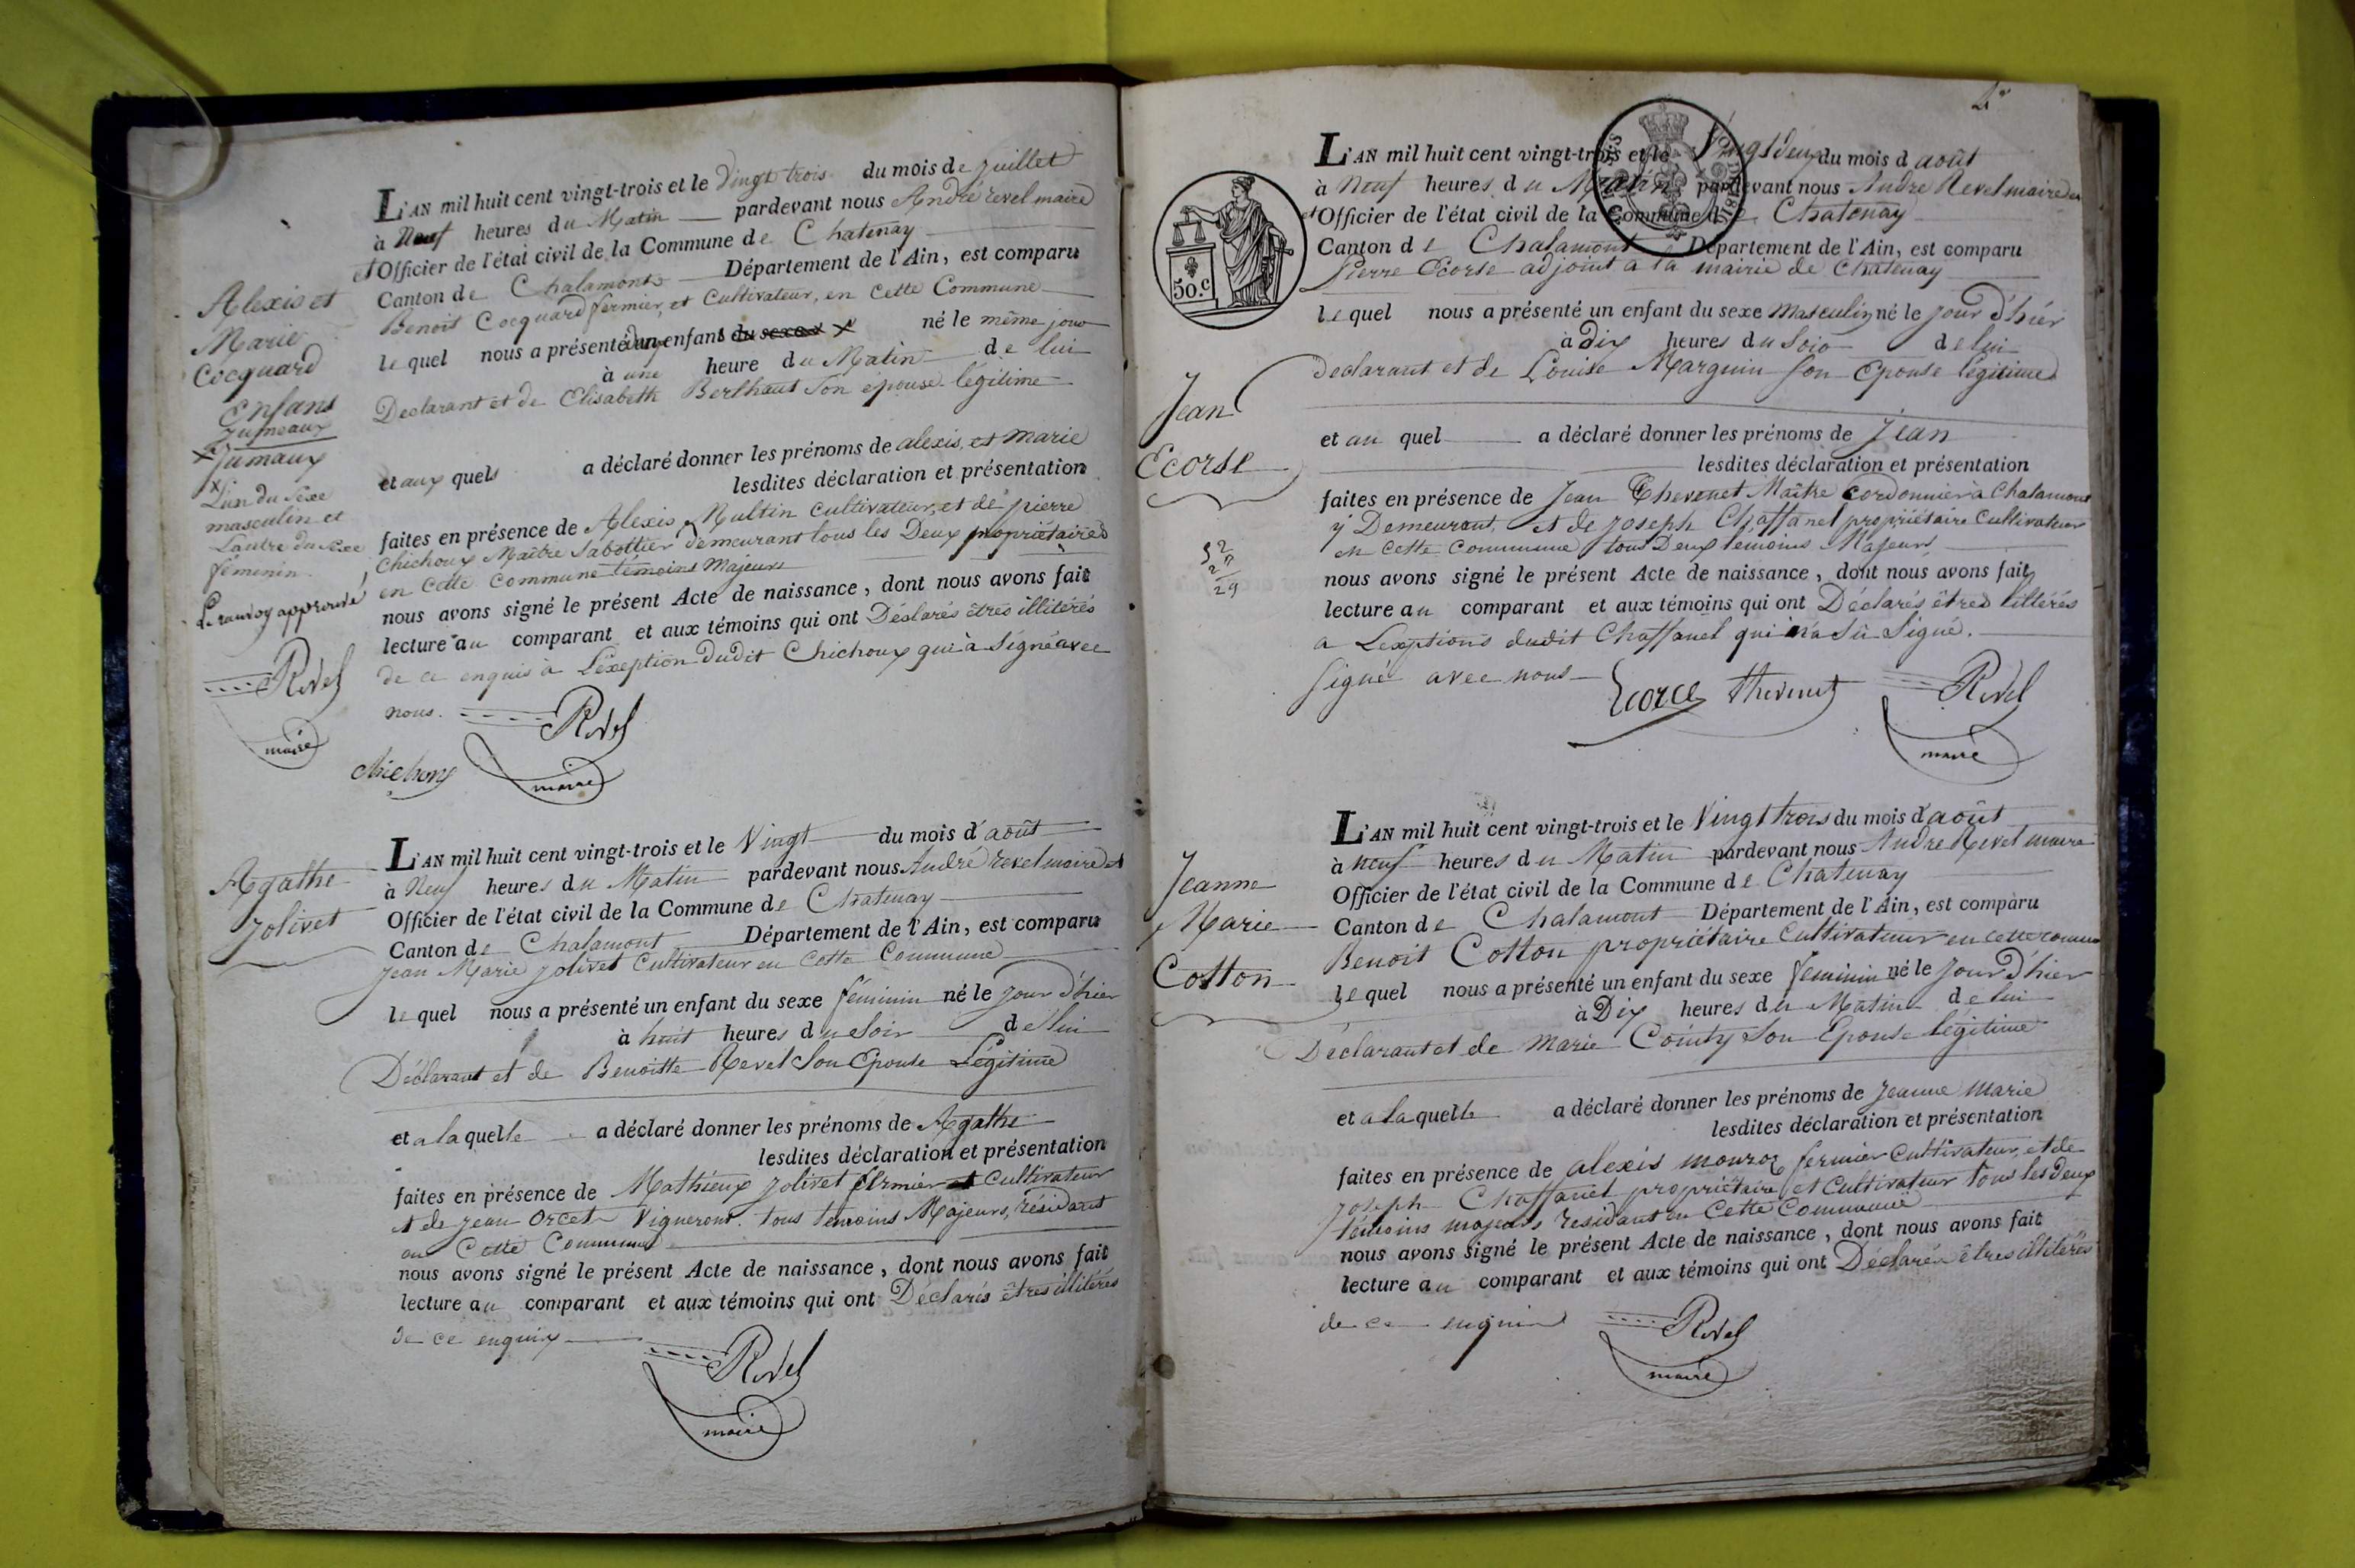 Alexis et
Marie
Cocquard
Enfans
Jumeaux
x Jumaux
x L'un du Sexe
masculin et
L'autre du sexe
féminin.
Le renvoy approuvé
Revel
maire
L'AN mil huit cent vingt-trois et le vingt trois du mois de Juillet
à Neuf heures du Matin pardevant nous André revel maire
et Officier de l'état civil de la Commune de Chatenay
Canton de Chalamont Département de l'Ain, est comparu
Benoit Cocquard fermier, et Cultivateur, en Cette Commune
le quel nous a présenté enfant du sexe x né le même jour
à une heure du Matin de lui
Declarant et de Elisabeth Berthaut Son épouse légitime
et aux quels a déclaré donner les prénoms de alexis, et marie
lesdites déclaration et présentation
faites en présence de Alexis Multin cultivateur, et de pierre
Chichoux Maître Sabottier demeurant tous les Deux propriétaires
en cette Commune temoins Majeurs
nous avons signé le présent Acte de naissance, dont nous avons fait
lecture au comparant et aux témoins qui ont Déclarés êtres illitérés
de ce enquis à L'exeption Dudit Chichoux qui à Signé avec
nous. Revel
maire
Chichoux
Agathe
Jolivet
L'AN mil huit cent vingt-trois et le Vingt du mois d'août
à Neuf heures du Matin pardevant nous André revel maire et
Officier de l'état civil de la Commune de Chatenay
Canton de Chalamont Département de l'Ain, est comparu
Jean Marie Jolivet Cultivateur en Cette Commune
le quel nous a présenté un enfant du sexe féminin né le jour d'hier
à huit heures du Soir de lui
Déclarant et de Benoitte Revel Son Epouse Légitime
et a la quelle a déclaré donner les prénoms de Agathe
lesdites déclaration et présentation
faites en présence de Mathieux Jolivet fermier et Cultivateur
et de Jean Orcet Vigneront. tous temoins Majeurs, résidants
en Cette Commune
nous avons signé le présent Acte de naissance, dont nous avons fait
lecture au comparant et aux témoins qui ont Déclarés êtres illitérés
de ce enquix
Revel
maire
50.c
Jean
Ecorse
29
L'AN mil huit cent vingt-trois et le Vingt deux du mois d août
à Neuf heures du Matin pardevant nous André Revel maire
et Officier de l'état civil de la Commune de Chatenay
Canton de Chalamont Département de l'Ain, est comparu
Pierre Ecorse adjoint a la mairie de Chatenay
le quel nous a présenté un enfant du sexe Masculin né le jour d'hiér
à dix heures du Soir de lui
Declarant et de Louise Marguin Son Epouse légitime
et au quel a déclaré donner les prénoms de Jean
lesdites déclaration et présentation
faites en présence de Jean Thevenet Maître Cordonnier à Chalamont
y Demeurant, et de Joseph Chaffanel propriétaire Cultivateur
en Cette Commune tous Deux témoins Majeurs
nous avons signé le présent Acte de naissance, dont nous avons fait
lecture au comparant et aux témoins qui ont Déclarés êtres littérés
a L'exptions dudit Chaffanel qui n'a Sû Signé.
Signé avec nous
Ecorce Thevenet Revel
maire
Jeanne
Marie
Cotton
L'AN mil huit cent vingt-trois et le Vingt trois du mois d'août
à neuf heures du Matin pardevant nous André Revel maire
Officier de l'état civil de la Commune de Chatenay
Canton de Chalamont Département de l'Ain, est comparu
Benoit Cotton propriétaire Cultivateur en cette
le quel nous a présenté un enfant du sexe féminin né le jour d'hier
à Dix heures du Matin de lui
Déclarant et de Marie Son Epouse légitime
et a la quelle a déclaré donner les prénoms de Jeanne Marie
lesdites déclaration et présentation
faites en présence de alexis mouroz fermier Cultivateur, et de
Joseph Chaffanel propriétaire et Cultivateur tous les deux
témoins majeurs residant en Cette Commune
nous avons signé le présent Acte de naissance, dont nous avons fait
lecture au comparant et aux témoins qui ont Déclarés êtres illitérés
de ce enquis
Revel
maire